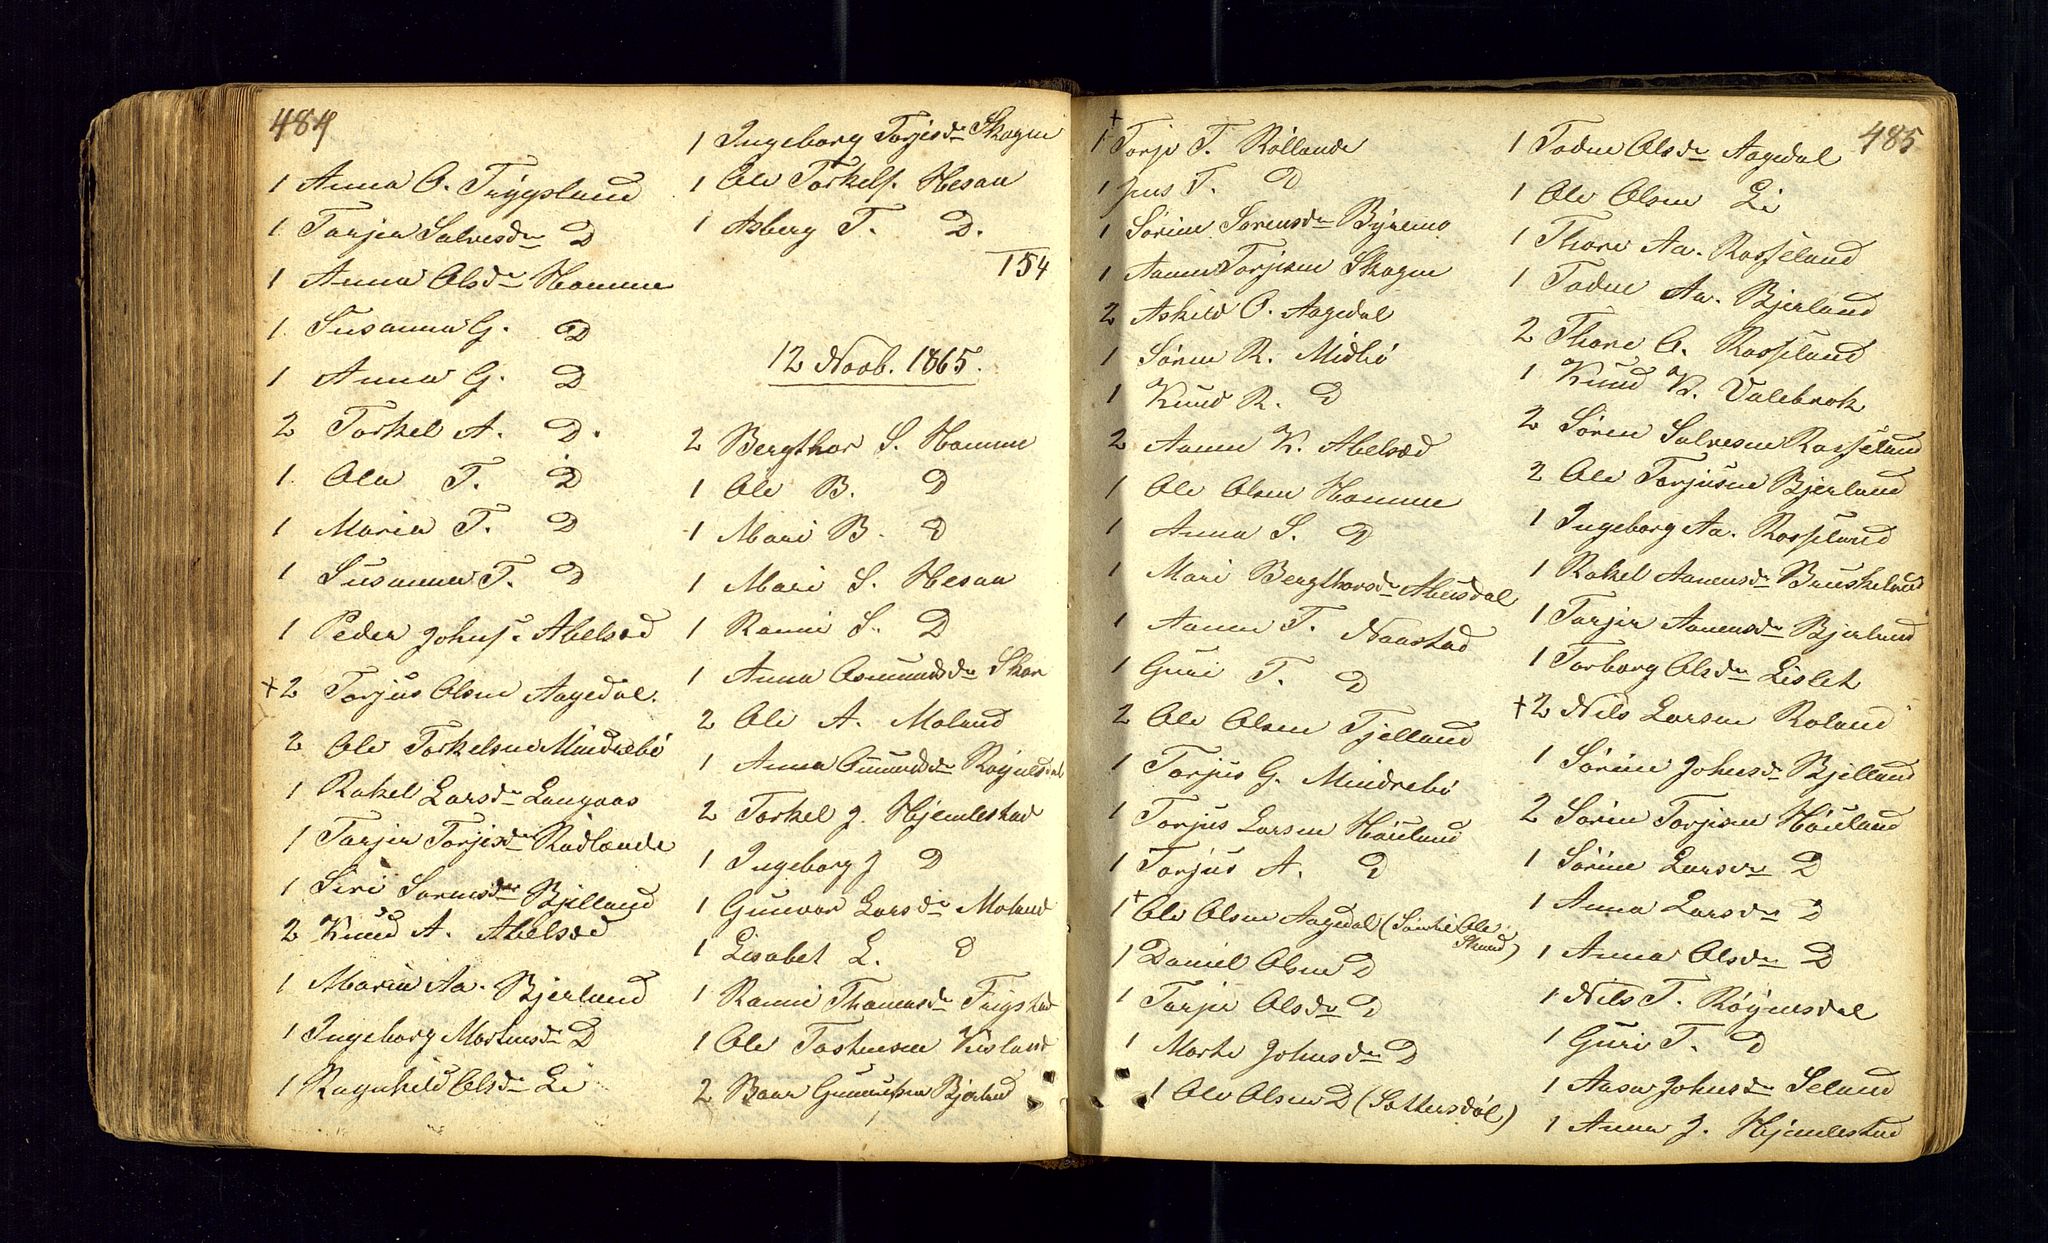 484
1 Anna O. Tryggsland
1 Tarjer Salvesdr D
1 Anna Olsdr Homme
1 Susanna G. D
1 Anna G. D
2 Torkel A. D.
1 Ola T. D
1 Maria T. D
1 Susanna T. D
1 Peder Johns. Abelsæd
+2 Torjus Olsen Aagedal.
2 Ole Torkelsen Mindrebö
1 Rakel Larsdr Langaas
1 Tarjer Torjesdr Rødlende
1 Siri Sørensdr Bjelland
2 Knud A. Abelsæd
1 Maren Aa. Bjerland
1 Ingeborg Mortensdr D
1 Ragnhild Olsdr Li
1 Ingeborg Torjesdr Skogen
1 Ole Torkels. Hesaa
1 Asberg T. D.
154
12 Novb. 1865.
2 Bergthor S. Homme
1 Ole B. D
1 Mari B. D
1 Mari S. Hesaa
1 Ranni S. D
1 Anna Osmundsdr Skar
2 Ole A. Moland
1 Anna Omundsdr Røynesdal
2 Torkel J. Hjemlestad
1 Ingeborg J D
1 Gunvor Larsdr Moland
1 Lisabet L. D
1 Ranni Thomasdr Frigstad
1 Ole Tostensen Kvisland
2 Baar Gunnufsen Bjerland
485
+
1 Torje T. Röllende
1 Jens T. D
1 Sörine Sorensdr Byremo
1 Aanen Torjesen Skogen
2 Askild O. Aagedal
1 Sören R. Midbö
1 Knud R. D
2 Aanen K. Abelsæd
1 Ole Olsen Homme
1 Anna S. D
1 Mari Bergthorsdr Abusdal
1 Aanen T. Naastad
1 Guri T. D
2 Ole Olsen Tjelland
1 Torjus G. Mindrebö
1 Torjus Larsen Höieland
1 Torjus A. D
+
1 Ole Olsen Aagedal (Ole
1 Daniel Olsen D
1 Tarjer Olsdr D
1 Marte Johnsdr D
1 Ole Olsen D (Sottersdöl)
1 Todne Olsdr Aagedal
1 Ole Olsen Li
1 Thore Aa. Rosseland
1 Todne Aa. Bjerland
2 Thore O. Rosseland
1 Knud K. Valebrok
2 Sören Salvesen Rosseland
2 Ole Torjusen Bjerland
1 Ingeborg Aa. Rosseland
1 Rakel Aanensdr Bruskeland
1 Tarjer Aanensdr Bjerland
1 Torborg Olsdr Lislet
+2 Nils Larsen Roland
1 Sörine Johnsdr Bjelland
2 Sören Torjesen Höieland
1 Sörine Larsdr D
1 Anna Larsdr D
1 Anna Olsdr D
1 Nils T. Röynesdal
1 Guri T. D
1 Aasa Johnsdr Seland
1 Anna J. Hjemlestad